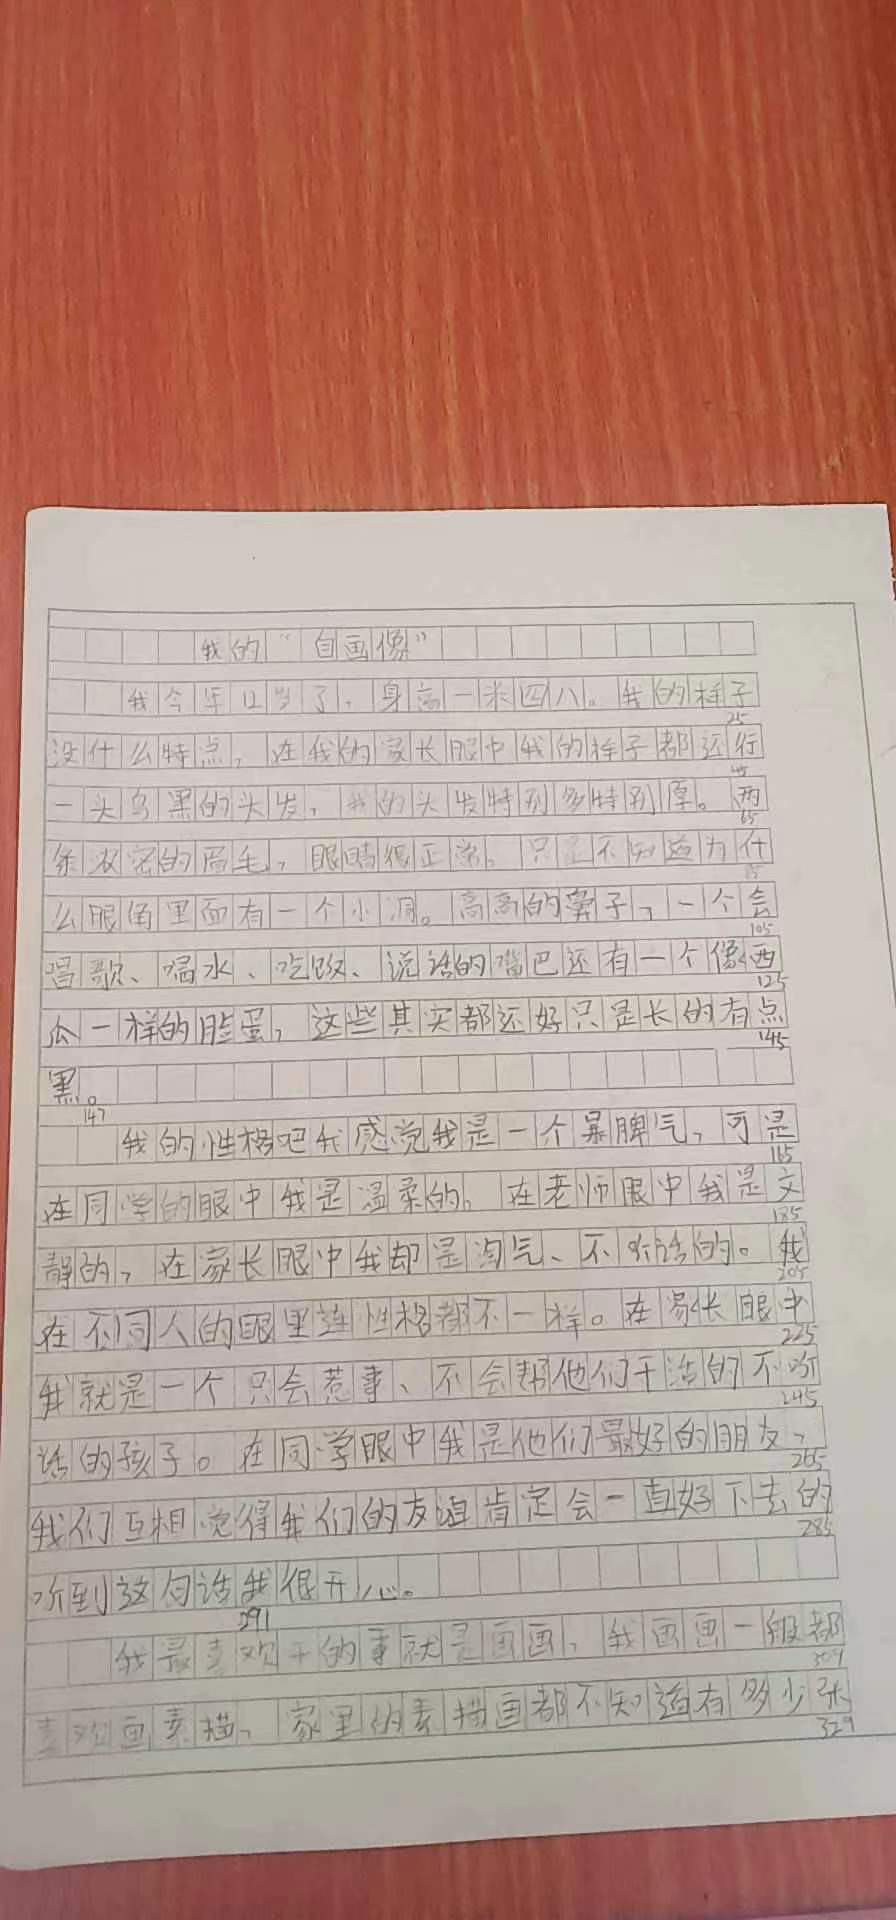 我的“自画像”
我今年12岁了，身高一米四八。我的样子
25
没什么特点，在我的家长眼中我的样子都还行
45
一头乌黑的头发，我的头发特别多特别厚。两
65
条浓密的眉毛，眼睛很正常。只是不知道为什
85
么眼角里面有一个小洞。高高的鼻子，一个会
105
唱歌、喝水、吃饭、说话的嘴巴还有一个像西
125
瓜一样的脸蛋，这些其实都还好只是长的有点
145
黑。
147
我的性格吧我感觉我是一个暴脾气，可是
165
在同学的眼中我是温柔的。在老师眼中我是文
185
静的，在家长眼中我却是淘气、不听话的。我
205
在不同人的眼里连性格都不一样。在家长眼中
225
我就是一个只会惹事、不会帮他们干活的不听
245
话的孩子。在同学眼中我是他们最好的朋友，
265
我们互相觉得我们的友谊肯定会一直好下去的
285
听到这句话我很开心。
291
我最喜欢干的事就是画画，我画画一般都
309
喜欢画素描，家里的素描画都不知道有多少张
329